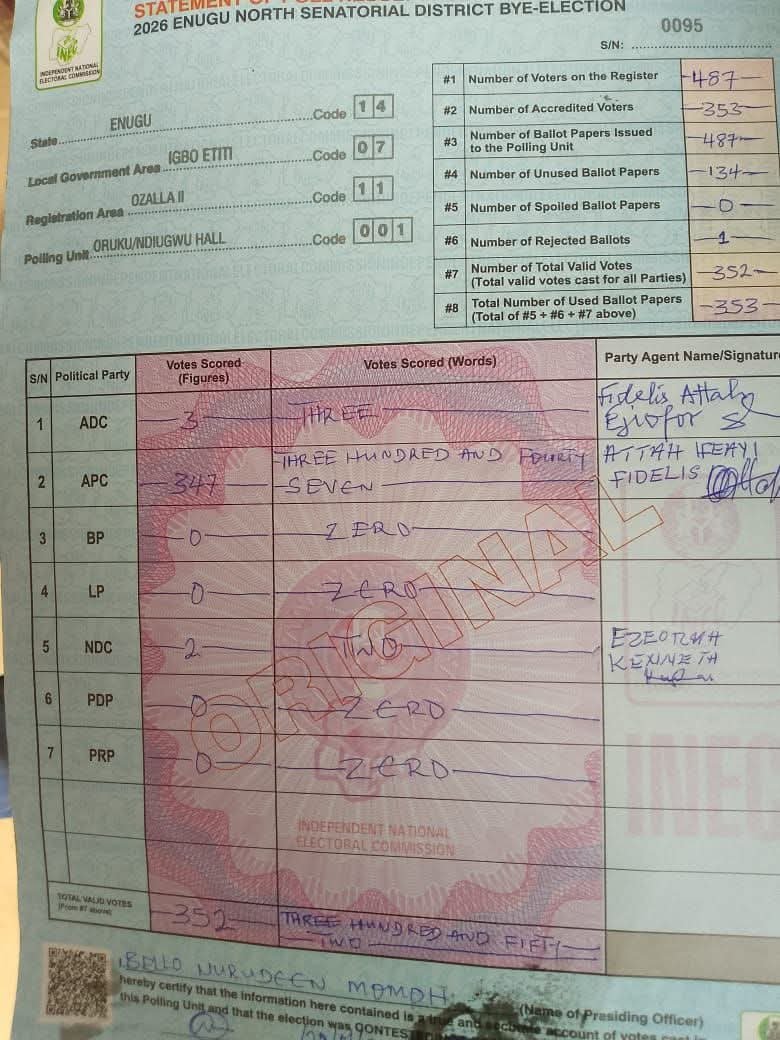 STATEMENT OF POLL
2026 ENUGU NORTH SENATORIAL DISTRICT BYE-ELECTION
INDEPENDENT NATIONAL
ELECTORAL COMMISSION
0095
S/N:
State ENUGU Code 14
Local Government Area IGBO ETITI Code 07
Registration Area OZALLA II Code 11
Polling Unit ORUKU/NDIUGWU HALL Code 001
#1 Number of Voters on the Register 487
#2 Number of Accredited Voters 353
#3 Number of Ballot Papers Issued
to the Polling Unit 487
#4 Number of Unused Ballot Papers 134
#5 Number of Spoiled Ballot Papers 0
#6 Number of Rejected Ballots 1
#7 Number of Total Valid Votes
(Total valid votes cast for all Parties) 352
#8 Total Number of Used Ballot Papers
(Total of #5 + #6 + #7 above) 353
S/N Political Party Votes Scored (Figures) Votes Scored (Words) Party Agent Name/Signature
1 ADC 3 THREE Fidelis Attah
Ejiofor
2 APC 347 THREE HUNDRED AND FOURTY
SEVEN ATTAH IFEAYI
FIDELIS
3 BP 0 ZERO
4 LP 0 ZERO
5 NDC 2 TWO
KENNETH
6 PDP 0 ZERO
7 PRP 0 ZERO
ORIGINAL
INEC
INDEPENDENT NATIONAL
ELECTORAL COMMISSION
TOTAL VALID VOTES
(From #7 above) 352 THREE HUNDRED AND FIFTY
TWO
I, BELLO NURUDEEN MOMOH (Name of Presiding Officer)
hereby certify that the information here contained is a true and accurate account of votes cast in
this Polling Unit and that the election was CONTESTED